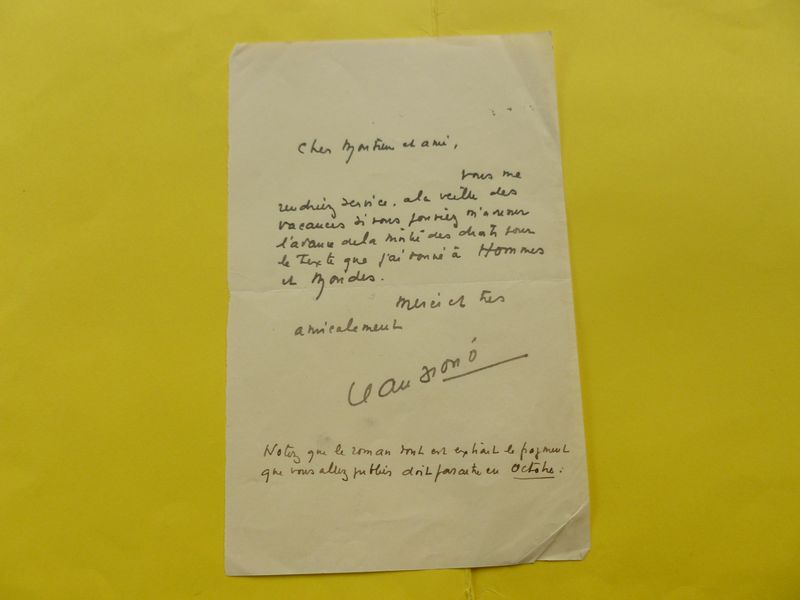 Cher Monsieur et ami,
Vous me
rendriez service, à la veille des
vacances si vous pouviez m'assurer
l'avance de la moitié des droits pour
le Texte que j'ai donné à Hommes
et Mondes.
Merci et très
amicalement
Jean Giono
Notez que le roman dont est extrait le fragment
que vous allez publier doit paraître en Octobre.